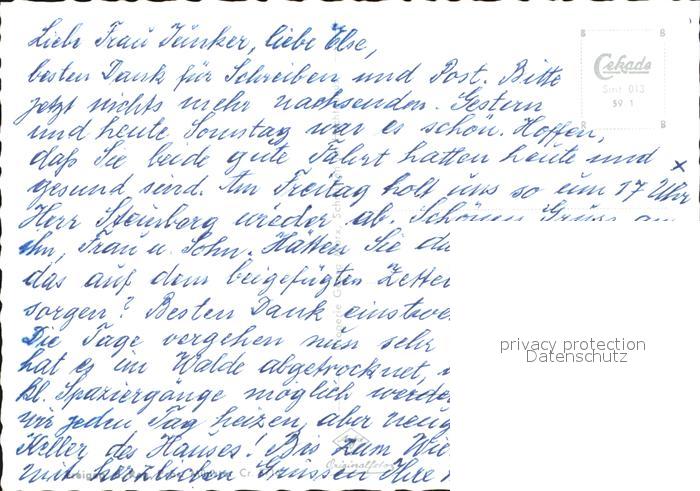 Liebe Frau Junker, liebe Else,
besten Dank für Schreiben und Post. Bitte
jetzt nichts mehr nachsenden. Gestern
und heute Sonntag war es schön. Hoffen,
daß Sie beide gute Fahrt hatten heute und
gesund sind. Am Freitag holt uns so um 17 Uhr
Herr Steinberg wieder ab. Schönen Gruss an
ihn, Frau u. Sohn. Hätten Sie
das auf dem beigefügten
sorgen? Besten Dank
Die Tage vergehen nun sehr
hat es im Walde abgetrocknet,
kl. Spaziergänge möglich
wir jeden Tag heizen, aber
Keller des Hauses! Bis zum
mit herzlichen Grüssen Ihre
Cekade
Smt 013
59 1
Originalfoto
privacy protection
Datenschutz